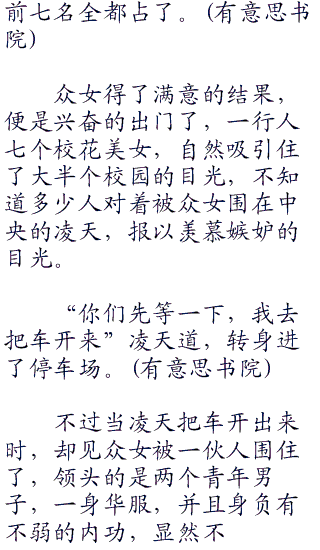 前七名全都占了。 (有意思书
院)
众女得了满意的结果，
便是兴奋的出门了，一行人
七个校花美女，自然吸引住
了大半个校园的目光，不知
道多少人对着被众女围在中
央的凌天，报以羡慕嫉妒的
目光。
“你们先等一下，我去
把车开来”凌天道，转身进
了停车场。 (有意思书院)
不过当凌天把车开出来
时，却见众女被一伙人围住
了，领头的是两个青年男
子，一身华服，并且身负有
不弱的内功，显然不